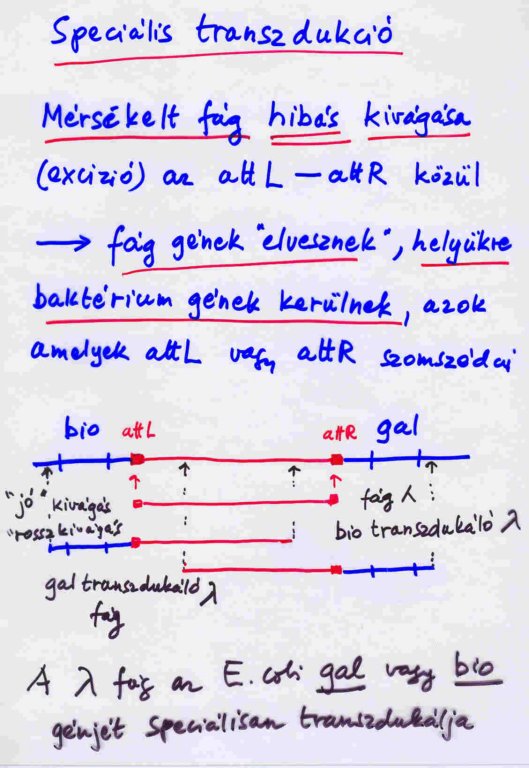 Speciális transzdukció
Mérsékelt fág hibás kivágása
(excizió) az attL — attR közül
→ fág gének "elvesznek", helyükre
baktérium gének kerülnek, azok
amelyek attL vagy attR szomszédai
bio attL attR gal
"jó" kivágás fág λ
"rossz kivágás bio transzdukáló λ
gal transzdukáló λ
fág
A λ fág az E. coli gal vagy bio
génjét speciálisan transzdukálja